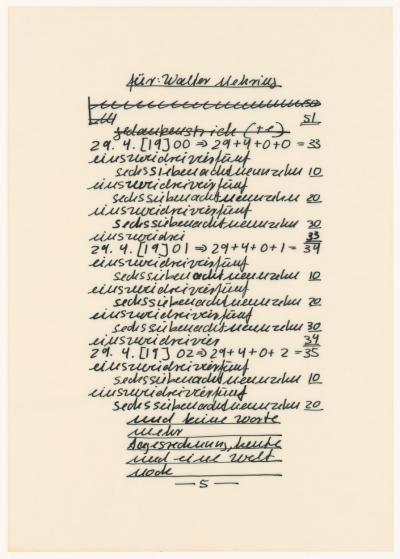 für: Walter Mehring
51
gedankenstrich (++)
29. 4. [19] 00 ⇒ 29+4+0+0 = 33
einszweidreivierfünf
sechssiebenachtneunzehn 10
einszweidreivierfünf
sechssiebenachtneunzehn 20
einszweidreivierfünf
sechssiebenachtneunzehn 30
einszweidrei 33
29. 4. [19] 01 ⇒ 29+4+0+1 = 34
einszweidreivierfünf
sechssiebenachtneunzehn 10
einszweidreivierfünf
sechssiebenachtneunzehn 20
einszweidreivierfünf
sechssiebenachtneunzehn 30
einszweidreivier 34
29. 4. [19] 02 ⇒ 29+4+0+2 = 35
einszweidreivierfünf
sechssiebenachtneunzehn 10
einszweidreivierfünf
sechssiebenachtneunzehn 20
und keine worte
mehr
Tagesrechnung, heute
und eine welt
noch
— 5 —